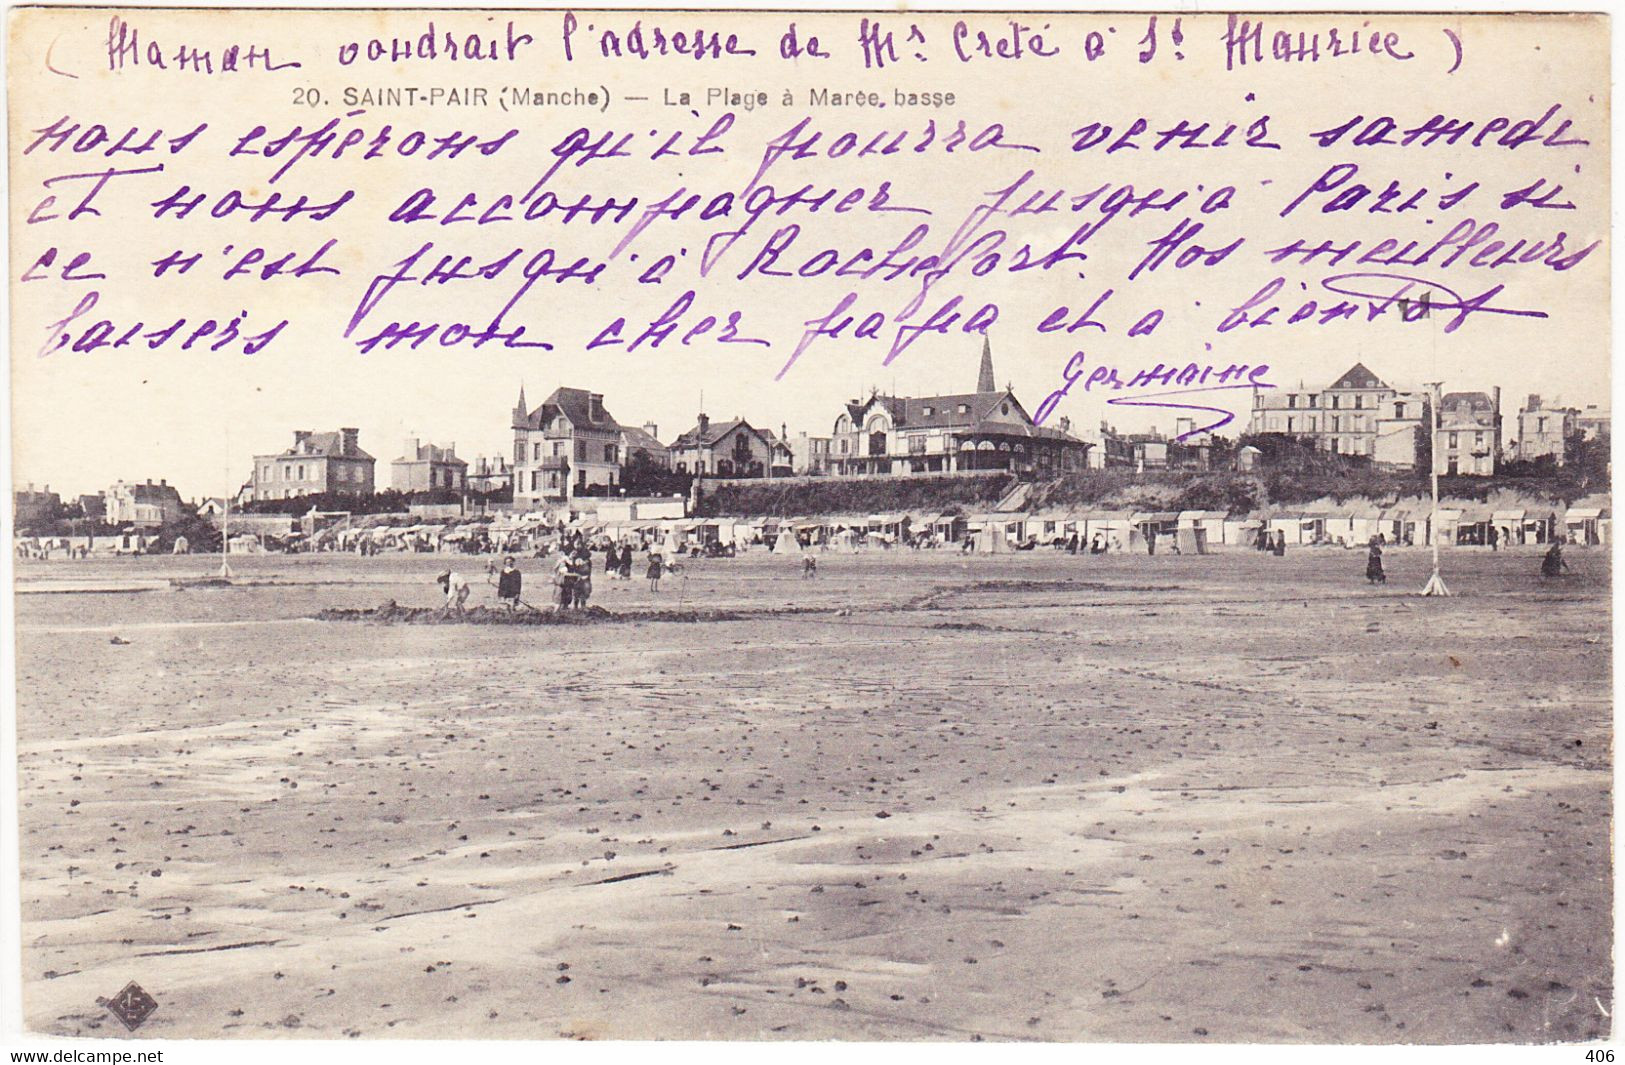 ( Maman voudrait l'adresse de Mr Creté à St Maurice )
20. SAINT-PAIR (Manche) — La Plage à Marée basse
nous espérons qu'il pourra venir samedi
et nous accompagner jusqu'à Paris si
ce n'est jusqu'à Rochefort. Nos meilleurs
baisers mon cher papa et à bientôt
Germaine
www.delcampe.net
406